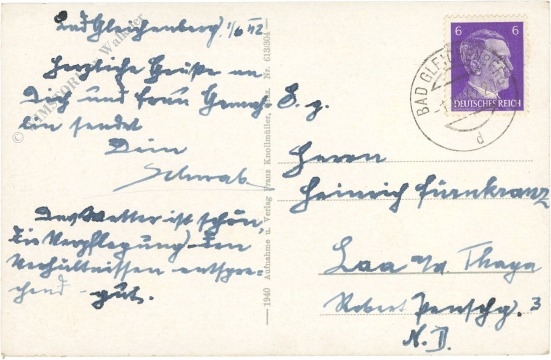 Bad Gleichenberg, 1/6 42
Herzliche Grüße an
Dich und Frau Gemah-
lin sendet
Dein
Schwab
Das Wetter ist schön,
die Verpflegung den
Verhältnissen entspre-
chend gut.
1940 Aufnahme u. Verlag Franz Knollmüller, Nr. 613/304
6 6
DEUTSCHES REICH
BAD GLEICHENBERG
d
S. g.
Herrn
Heinrich Fürnkranz
Laa a/d. Thaya
Robert 3
N. D.